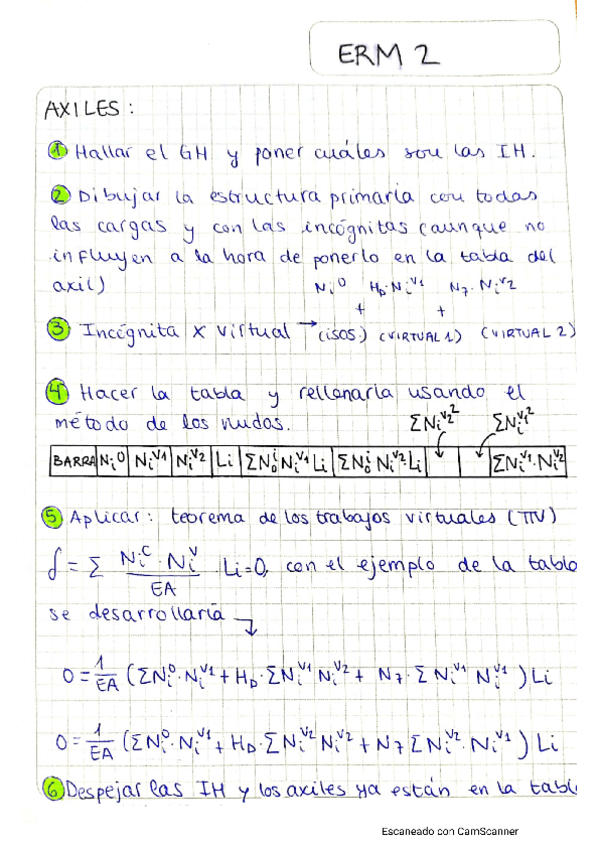 ERM 2
AXILES:
1 Hallar el GH y poner cuáles son las IH.
2 Dibujar la estructura primaria con todas
las cargas y con las incógnitas (aunque no
influyen a la hora de ponerlo en la tabla del
axil)
Ni⁰ + H_D·Ni^V1 + N7·Ni^V2
3 Incógnita x virtual → (ISOS.) (VIRTUAL 1) (VIRTUAL 2)
4 Hacer la tabla y rellenarla usando el
método de los nudos.
ΣNi^V2² ΣNi^V1²
BARRA | Ni⁰ | Ni^V1 | Ni^V2 | Li | ΣN₀^i Ni^V1 Li | ΣN₀^i Ni^V2·Li | | | ΣNi^V1·Ni^V2
5 Aplicar: teorema de los trabajos virtuales (TTV)
f = Σ Ni^C · Ni^V / EA · Li = 0, con el ejemplo de la tabla
se desarrollaría
0 = 1/EA (ΣNi⁰·Ni^V1 + H_D·ΣNi^V1 Ni^V2 + N7·ΣNi^V1 Ni^V1) Li
0 = 1/EA (ΣNi⁰·Ni^V1 + H_D·ΣNi^V2 Ni^V2 + N7 ΣNi^V2·Ni^V1) Li
6 Despejar las IH y los axiles ya están en la tabl
Escaneado con CamScanner